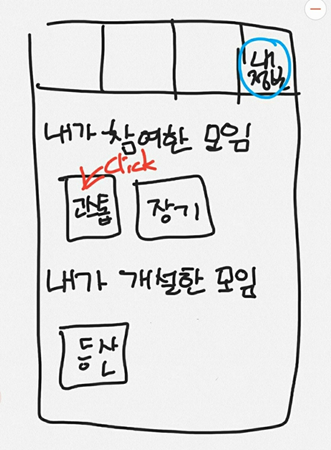 내
정보
내가 참여한 모임
click
고스톱
장기
내가 개설한 모임
등산